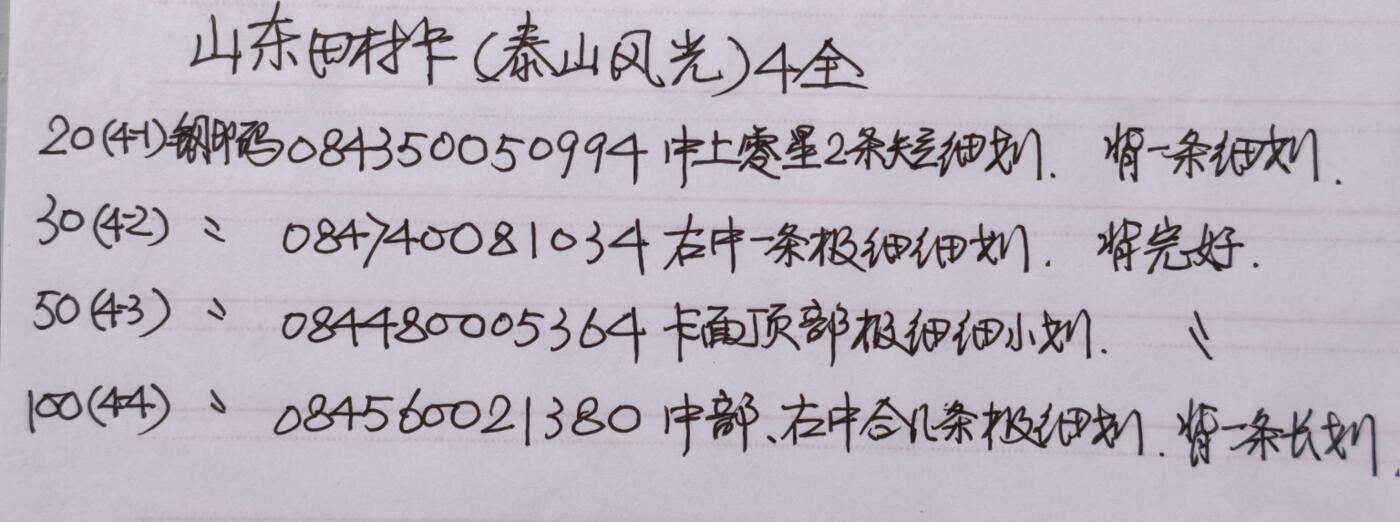 山东田村卡(泰山风光)4全
20(4-1)钢印码084350050994中上零星2条短细划. 背一条细划.
30(4-2) 〃 084740081034右中一条极细细划. 背完好.
50(4-3) 〃 084480005364卡面顶部极细细小划. 〃
100(4-4) 〃 084560021380中部、右中含几条极细划. 背一条长划.